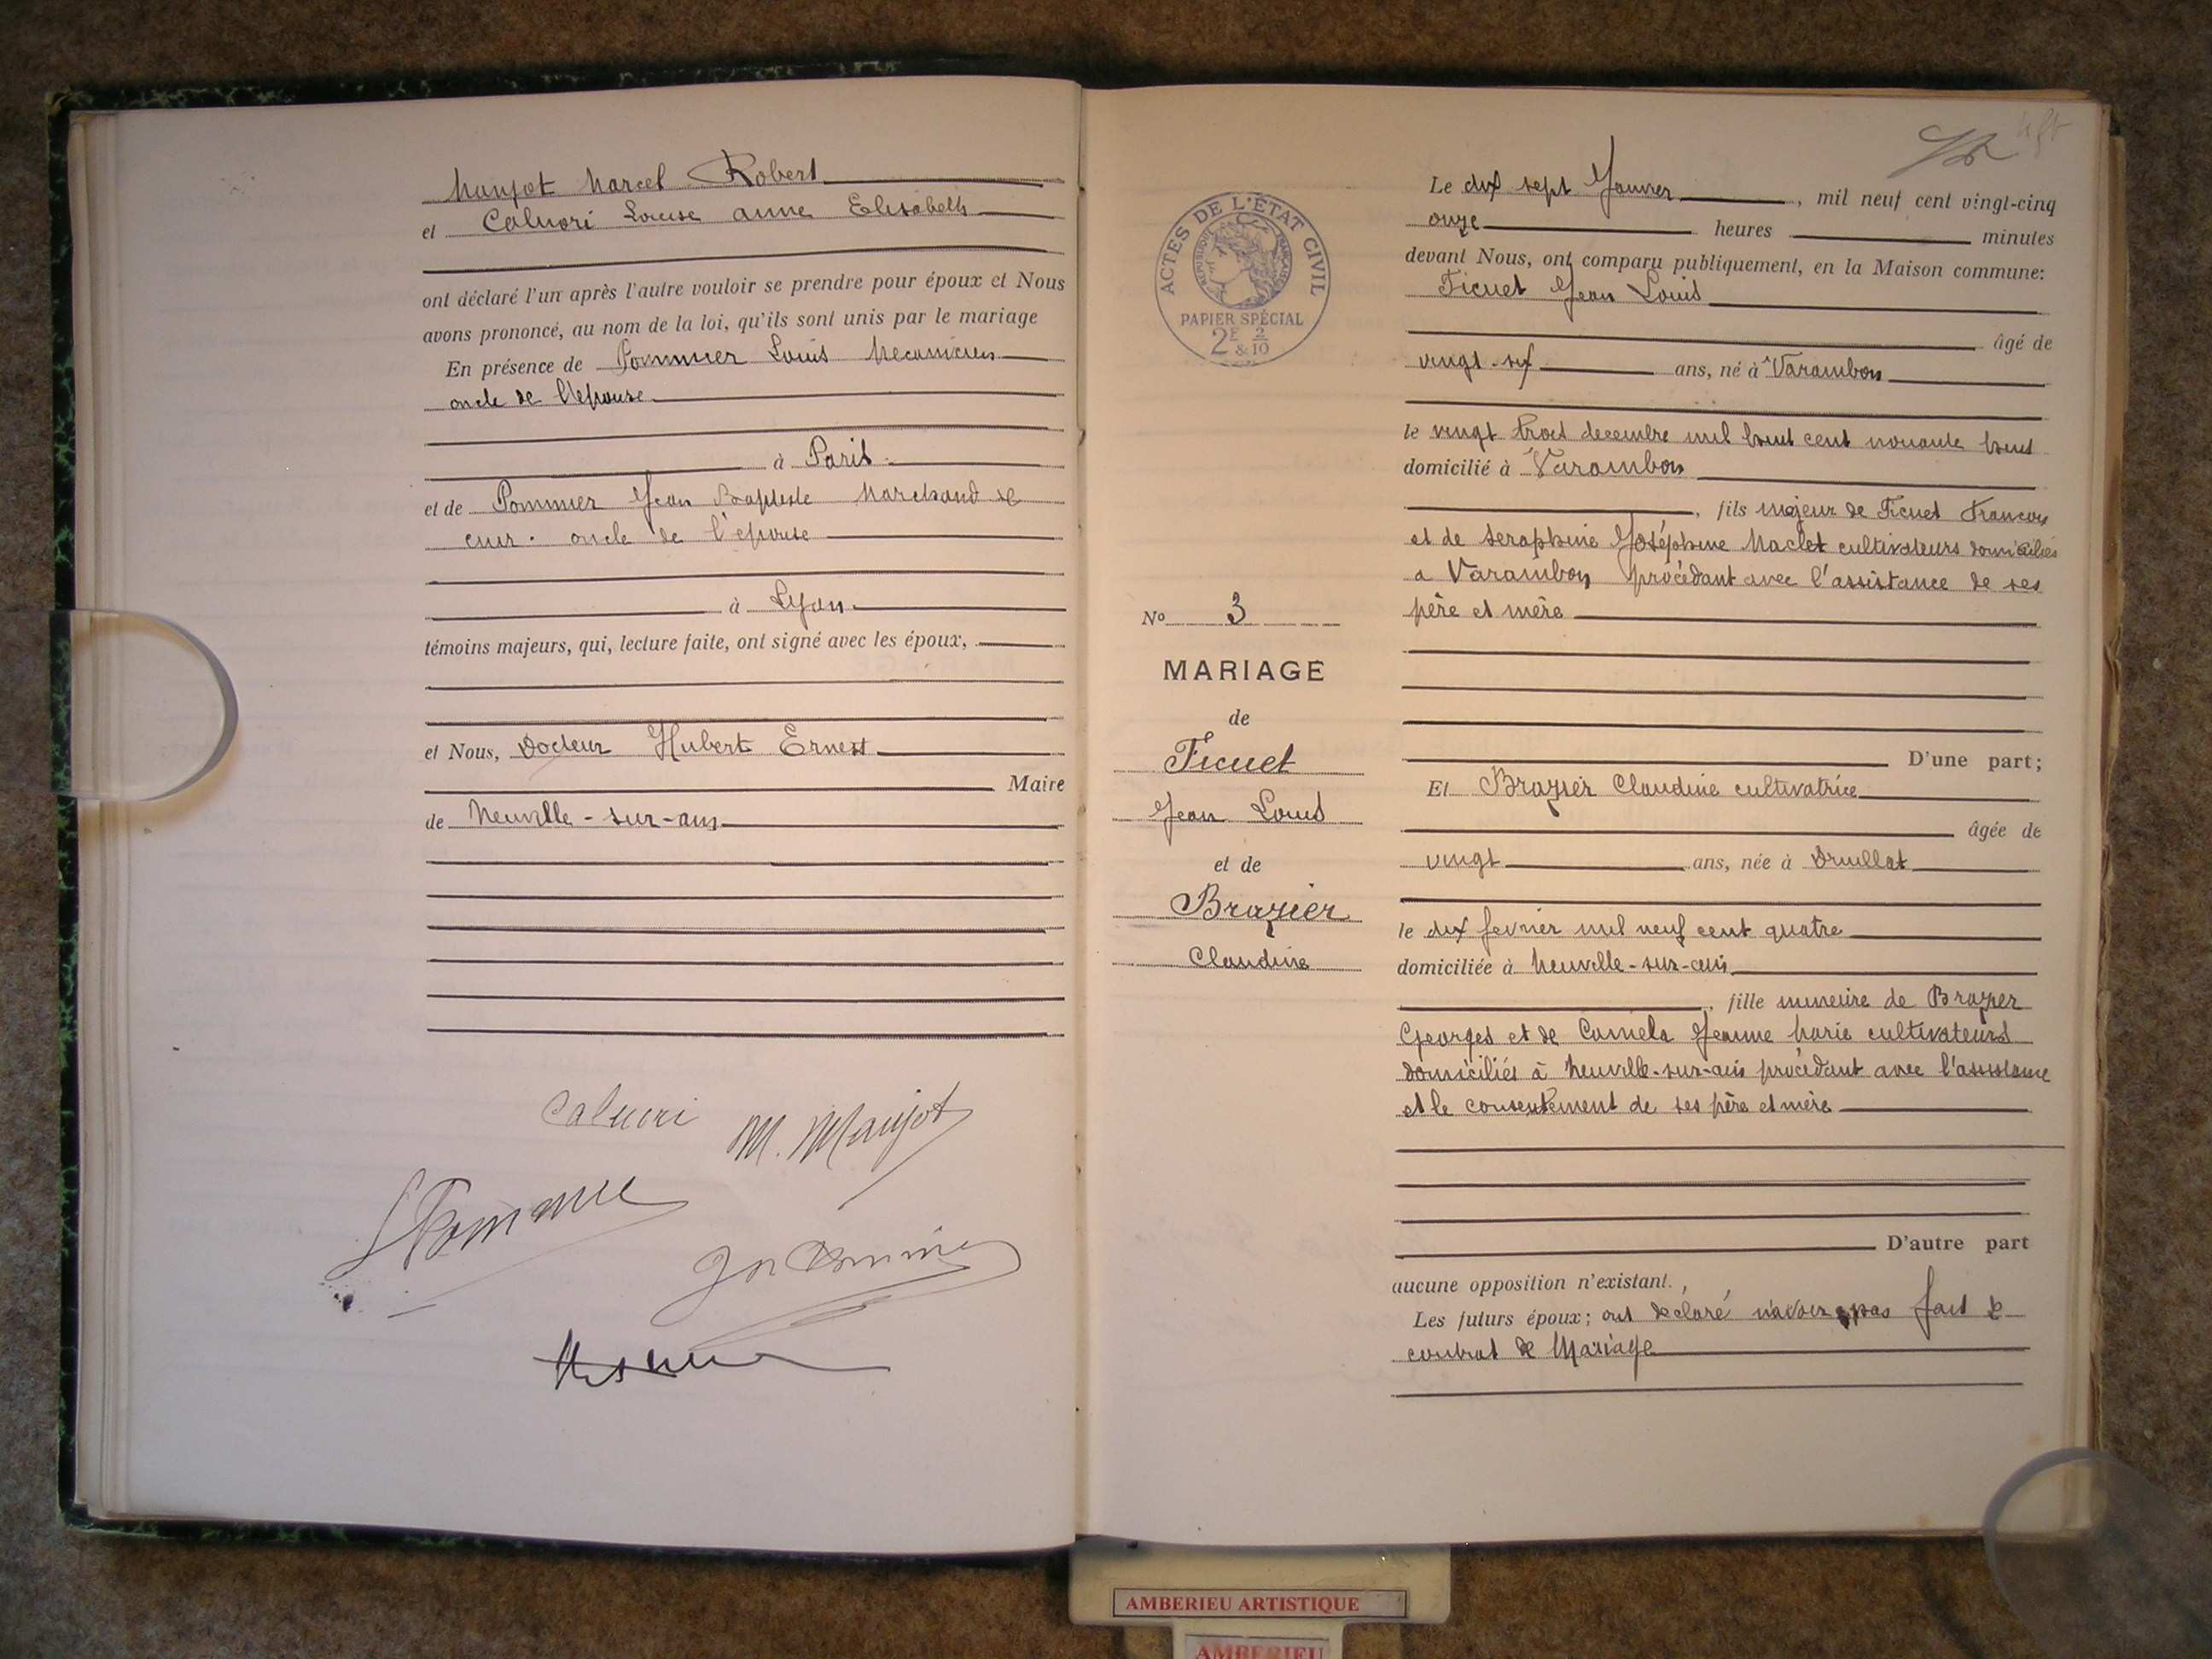 Maujot Marcel Robert
et Caluori Louise Anne Elisabeth
ont déclaré l'un après l'autre vouloir se prendre pour époux et Nous
avons prononcé, au nom de la loi, qu'ils sont unis par le mariage
En présence de Pommier Louis Mecanicien
oncle de l'épouse
à Paris
et de Pommier Jean Baptiste Marchand de
cuir. oncle de l'épouse
à Lyon
témoins majeurs, qui, lecture faite, ont signé avec les époux,
et Nous, Docteur Hubert Ernest
Maire
de Neuville-sur-ain
Caluori M. Maujot
Le dix sept Janvier, mil neuf cent vingt-cinq
onze heures minutes
devant Nous, ont comparu publiquement, en la Maison commune:
Ticuet Jean Louis
âgé de
vingt six ans, né à Varambon
le vingt trois decembre mil huit cent nonante huit
domicilié à Varambon
, fils majeur de Ticuet Francois
et de Seraphine Joséphine Maclet cultivateurs domiciliés
a Varambon procédant avec l'assistance de ses
père et mère
D'une part;
Et Brazier Claudine cultivatrice
âgée de
vingt ans, née à Druillat
le dix fevrier mil neuf cent quatre
domiciliée à Neuville-sur-ain
, fille mineure de Brazier
Georges et de Jeanne Marie cultivateurs
domiciliés à Neuville-sur-ain procédant avec l'assistance
et le consentement de ses père et mère
D'autre part
aucune opposition n'existant.
Les futurs époux; ont déclaré n'avoir pas fait de
contrat de Mariage
ACTES DE L'ÉTAT CIVIL
RÉPUBLIQUE FRANÇAISE
PAPIER SPÉCIAL
2F & 2/10
No 3
MARIAGE
de
Ticuet
Jean Louis
et de
Brazier
Claudine
AMBERIEU ARTISTIQUE
AMBERIEU